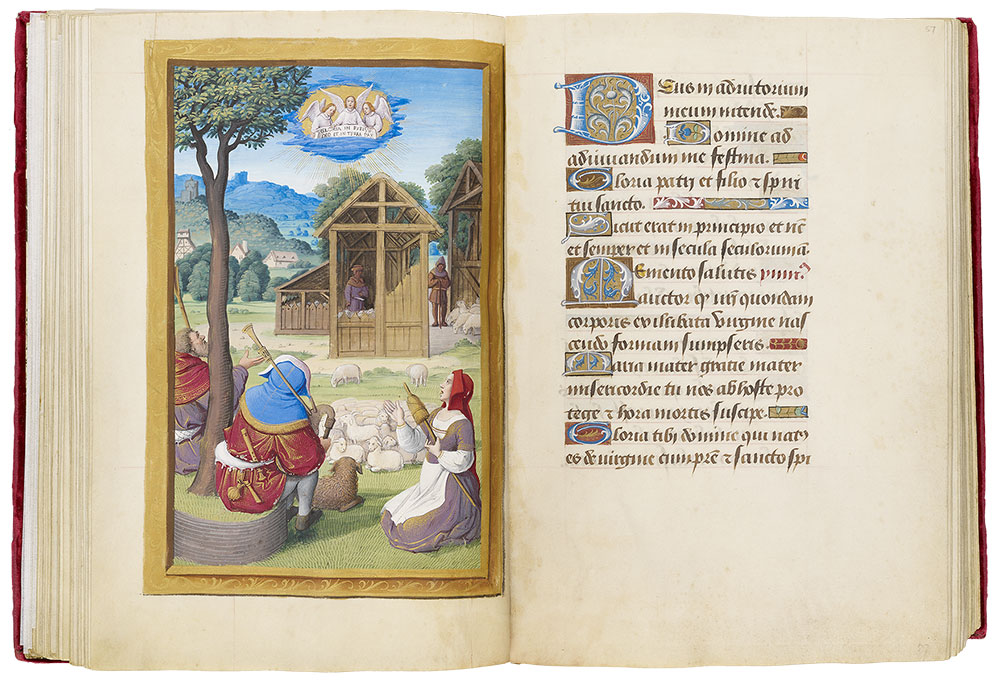 GLORIA IN EXCELSIS
DEO ET IN TERRA PAX
57
Deus in adiutorium
meum intende.
Domine ad
adiuuandum me festina.
Gloria patri et filio ⁊ spiri
tui sancto.
Sicut erat in principio et nūc
et semper et in secula seculorum am̄.
Memento salutis
auctor qꝫ nr̄i quondam
corporis ex illibata virgine nas
cendo formam sumpseris.
Maria mater gratie mater
misericordie tu nos ab hoste pro
tege ⁊ hora mortis suscipe.
Gloria tibi domine qui natꝰ
es de virgine cum pr̄e ⁊ sancto spi